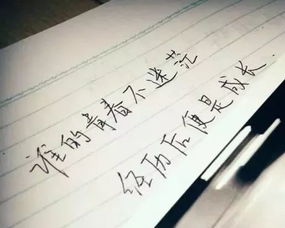 谁的青春不迷茫
经历后便是成长